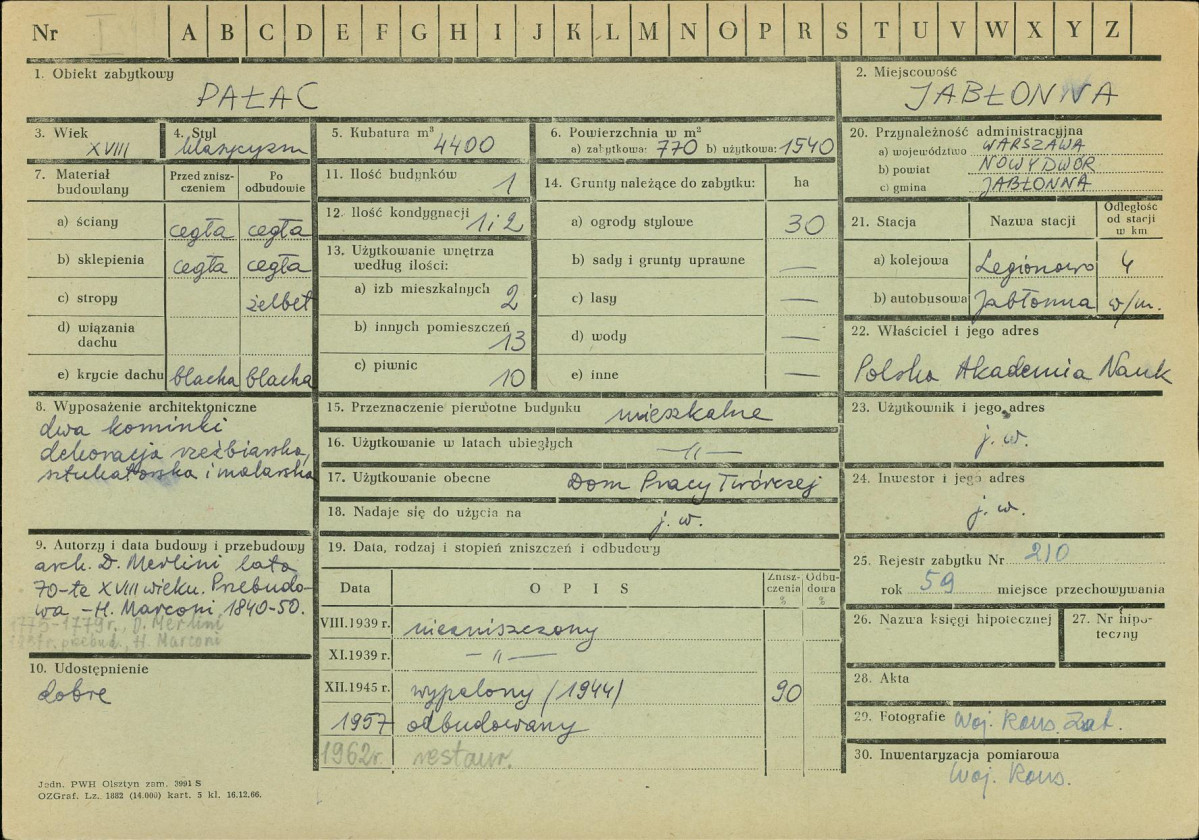 Nr I A B C D E F G H I J K L M N O P R S T U V W X Y Z
1. Obiekt zabytkowy
PAŁAC
2. Miejscowość
JABŁONNA
3. Wiek
XVIII
4. Styl
klasycyzm
5. Kubatura m³
4400
6. Powierzchnia w m²
a) zabytkowa: 770 b) użytkowa: 1540
7. Materiał budowlany
Przed zniszczeniem
Po odbudowie
a) ściany cegła cegła
b) sklepienia cegła cegła
c) stropy żelbet
d) wiązania dachu
e) krycie dachu blacha blacha
8. Wyposażenie architektoniczne
dwa kominki
dekoracja rzeźbiarska,
sztukatorska i malarska
9. Autorzy i data budowy i przebudowy
arch. D. Merlini lata
70-te XVIII wieku. Przebudo-
wa – H. Marconi 1840-50.
1775-1779r., D. Merlini
przebud., H. Marconi
10. Udostępnienie
dobre
11. Ilość budynków
1
12. Ilość kondygnacji
1 i 2
13. Użytkowanie wnętrza
według ilości:
a) izb mieszkalnych
2
b) innych pomieszczeń
13
c) piwnic
10
14. Grunty należące do zabytku: ha
a) ogrody stylowe 30
b) sady i grunty uprawne —
c) lasy —
d) wody —
e) inne —
15. Przeznaczenie pierwotne budynku mieszkalne
16. Użytkowanie w latach ubiegłych —〃—
17. Użytkowanie obecne Dom Pracy Twórczej
18. Nadaje się do użycia na j. w.
19. Data, rodzaj i stopień zniszczeń i odbudowy
Data O P I S Zniszczenia % Odbudowa %
VIII.1939 r. niezniszczony
XI.1939 r. —〃—
XII.1945 r. wypalony (1944) 90
1957 odbudowany
1962r. restaur.
20. Przynależność administracyjna
a) województwo WARSZAWA
b) powiat NOWY DWÓR
c) gmina JABŁONNA
21. Stacja Nazwa stacji Odległość od stacji w km
a) kolejowa Legionowo 4
b) autobusowa Jabłonna w/m.
22. Właściciel i jego adres
Polska Akademia Nauk
23. Użytkownik i jego adres
j. w.
24. Inwestor i jego adres
j. w.
25. Rejestr zabytku Nr 210
rok 59 miejsce przechowywania
26. Nazwa księgi hipotecznej
27. Nr hipoteczny
28. Akta
29. Fotografie Woj. Kons. Zab.
30. Inwentaryzacja pomiarowa
Woj. Kons.
Jedn. PWH Olsztyn zam. 3991 S
OZGraf. Lz. 1882 (14.000) kart. 5 kl. 16.12.66.